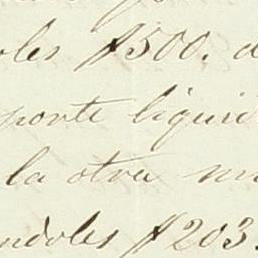 oles $500. d
porte liquid
la otra mi
endoles $203.